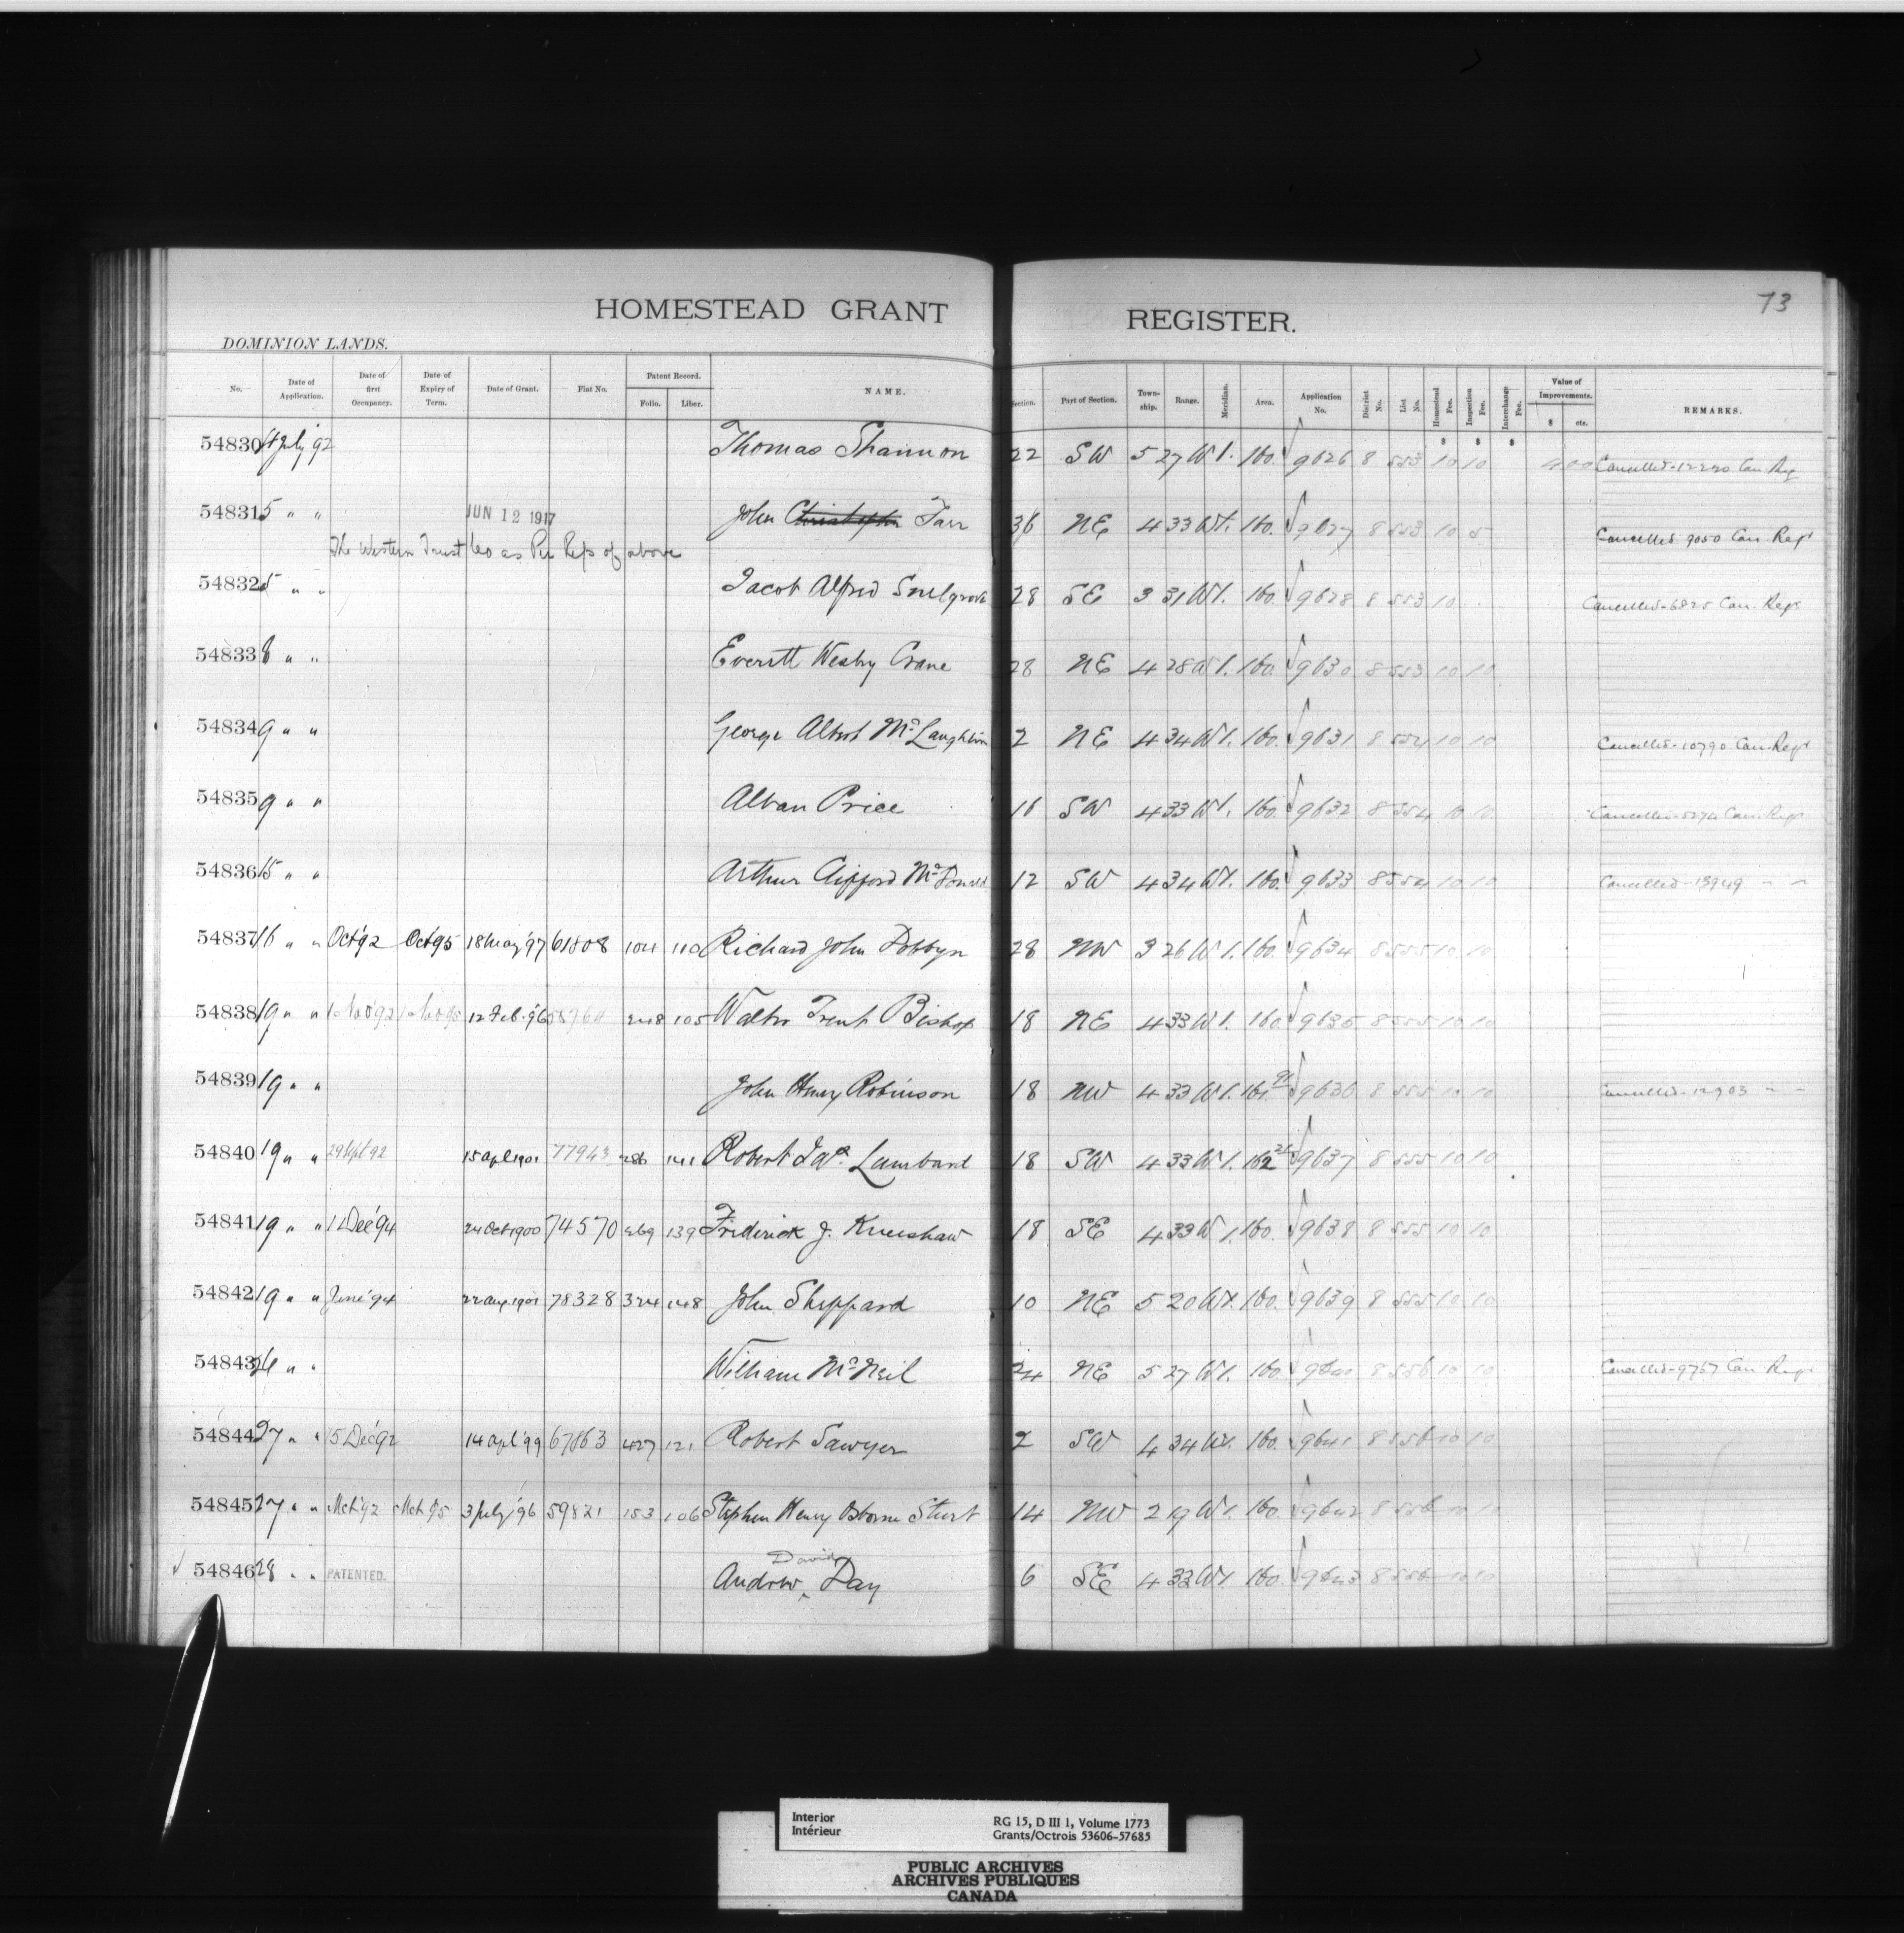 73
HOMESTEAD GRANT REGISTER.
DOMINION LANDS.
No. Date of Application. Date of first Occupancy. Date of Expiry of Term. Date of Grant. Fiat No. Patent Record. Folio. Liber. NAME. Section. Part of Section. Town-ship. Range. Meridian. Area. Application No. District No. List No. Homestead Fee. Inspection Fee. Interchange Fee. Value of Improvements. $ cts. REMARKS.
$ $ $
54830 4 July '92 Thomas Shannon 22 SW 5 27 W 1. 160. √ 9626 8 553 10 10 400 Cancelled-12220 Can Reg
54831 5 " " JUN 12 1917 John Christopher Tarr 36 NE 4 33 W1. 160. √ 9627 8 553 10 5 Cancelled 9050 Can Regr
The Western Trust Co as Per Reps of above
54832 5 " " Jacob Alfred Snelgrove 28 SE 3 31 W1. 160. √ 9628 8 553 10 Cancelled-6825 Can. Regr
54833 8 " " Everett Wesley Crane 28 NE 4 28 W1. 160. √ 9630 8 553 10 10
54834 9 " " George Albert McLaughlin 2 NE 4 34 W1. 160. √ 9631 8 554 10 10 Cancelled-10790 Can Regr
54835 9 " " Alvan Price 16 SW 4 33 W1. 160. √ 9632 8 554 10 10 Cancelled-5274 Can. Regr
54836 15 " " Arthur Clifford McDonald 12 SW 4 34 W1. 160. √ 9633 8 554 10 10 Cancelled-13949 " "
54837 16 " " Oct '92 Oct '95 18 May '97 61808 104 110 Richard John Dobbyn 28 NW 3 26 W 1. 160. √ 9634 8 555 10 10
54838 19 " " 1 Nov '92 1 Nov 95 12 Feb. '96 248 105 Walter Trent Bishop 18 NE 4 33 W 1. 160 √ 9635 8 555 10 10
54839 19 " " John Henry Robinson 18 NW 4 33 W 1. √ 9636 8 555 10 10 Cancelled-12903 " "
54840 19 " " 29 Sept 92 15 Apl 1901 77943 286 141 Robert Jas. Lambard 18 SW 4 33 W 1. 162 √ 9637 8 555 10 10
54841 19 " " 12 Dec '94 24 Oct 1900 74570 269 139 Frederick J. Kneeshaw 18 SE 4 33 W 1. 160. √ 9638 8 555 10 10
54842 19 " " June '94 22 Aug. 1901 78328 324 148 John Sheppard 10 NE 5 20 W1. 160. √ 9639 8 555 10 10
54843 26 " " William McNeil 24 NE 5 27 W1. 160. √ 9640 8 556 10 10 Cancelled-9757 Can Regr
54844 27 " " 15 Dec '92 14 Apl '99 67863 427 121 Robert Sawyer 2 SW 4 34 W1. 160. √ 9641 8 556 10 10
54845 27 " " Mch '92 Mch 95 3 July '96 59821 153 106 Stephen Henry Osborne Sturt 14 NW 2 19 W 1. 160. √ 9642 8 556 10 10
√ 54846 28 " " PATENTED. Andrew David Day 6 SE 4 33 W1 160. √ 9643 8 556 10 10
Interior
Intérieur
RG 15, D III 1, Volume 1773
Grants/Octrois 53606-57685
PUBLIC ARCHIVES
ARCHIVES PUBLIQUES
CANADA